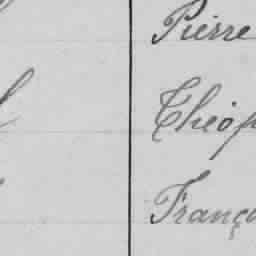 Pierre
Théop
Franço